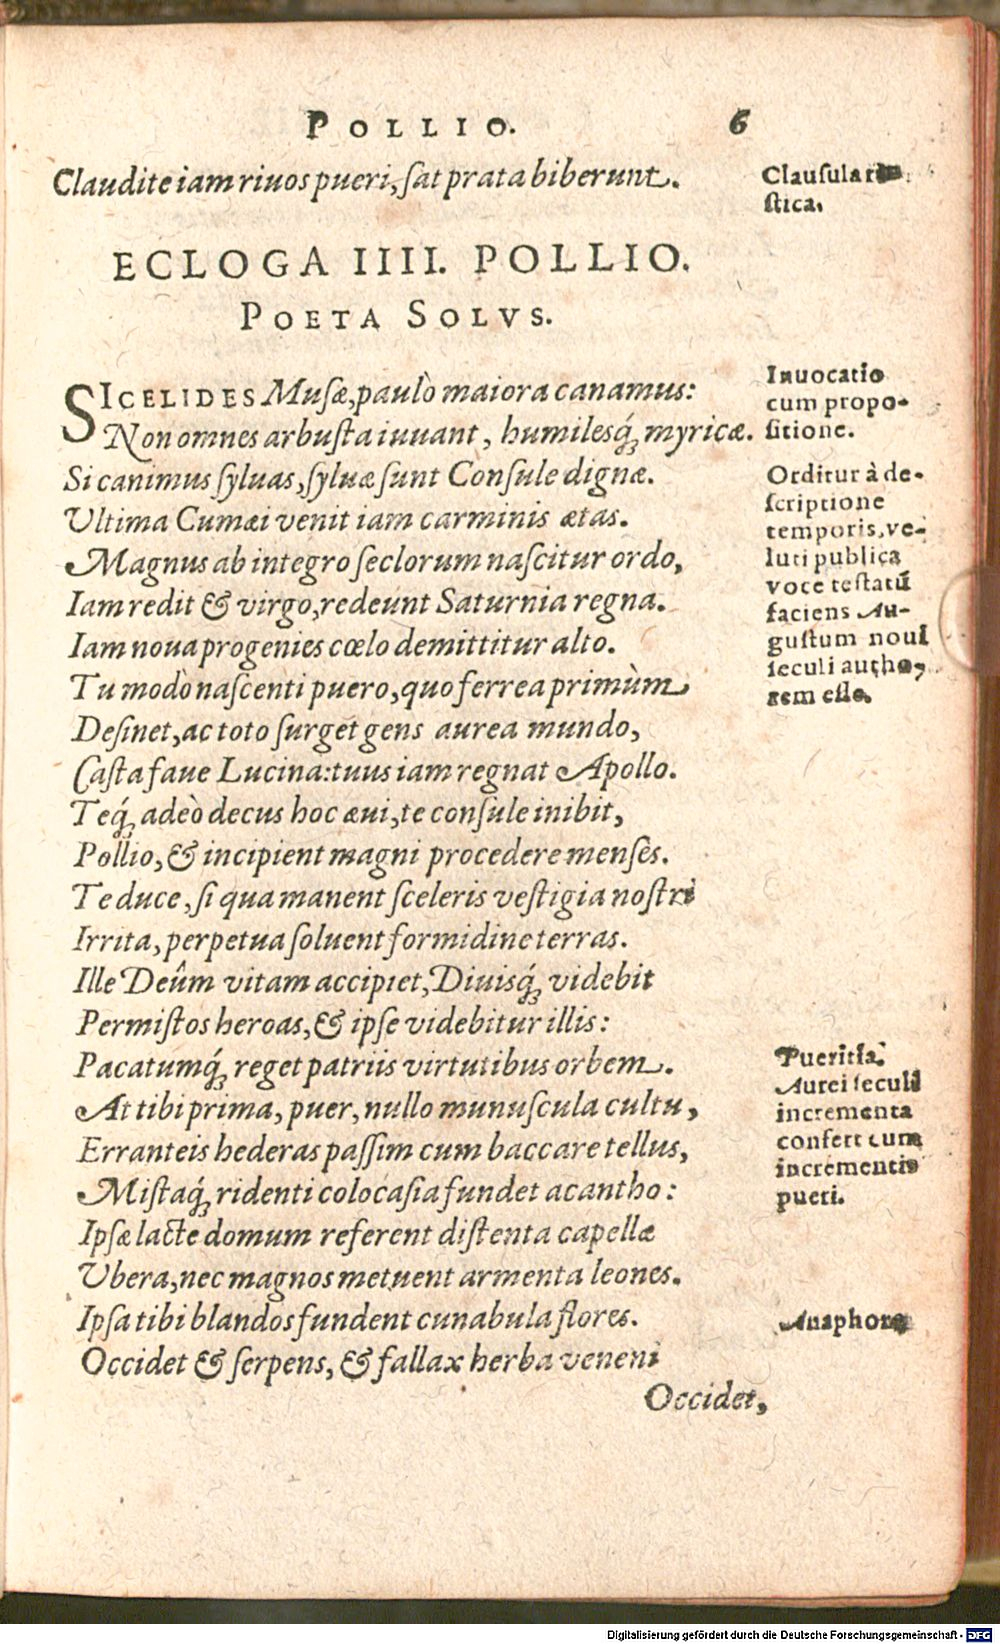 POLLIO. 6
Claudite iam riuos pueri, sat prata biberunt.
Clausula
stica.
ECLOGA IIII. POLLIO.
POETA SOLVS.
SICELIDES Musæ, paulò maiora canamus:
Non omnes arbusta iuuant, humilesq́; myricæ.
Si canimus syluas, syluæ sunt Consule dignæ.
Vltima Cumæi venit iam carminis ætas.
Magnus ab integro seclorum nascitur ordo,
Iam redit & virgo, redeunt Saturnia regna.
Iam noua progenies cœlo demittitur alto.
Tu modò nascenti puero, quo ferrea primùm
Desinet, ac toto surget gens aurea mundo,
Casta faue Lucina: tuus iam regnat Apollo.
Teq́; adeò decus hoc æui, te consule inibit,
Pollio, & incipient magni procedere menses.
Te duce, si qua manent sceleris vestigia nostri
Irrita, perpetua soluent formidine terras.
Ille Deûm vitam accipiet, Diuisq́; videbit
Permistos heroas, & ipse videbitur illis:
Pacatumq́; reget patriis virtutibus orbem.
At tibi prima, puer, nullo munuscula cultu,
Erranteis hederas passim cum baccare tellus,
Mistaq́; ridenti colocasia fundet acantho:
Ipsæ lacte domum referent distenta capellæ
Vbera, nec magnos metuent armenta leones.
Ipsa tibi blandos fundent cunabula flores.
Occidet & serpens, & fallax herba veneni
Occidet,
Inuocatio
cum propo-
sitione.
Orditur à de-
scriptione
temporis, ve-
luti publica
voce testatū
faciens Au-
gustum noui
seculi autho-
rem esse.
Pueritia.
Aurei seculi
incrementa
confert cum
incrementis
pueri.
Anaphora
Digitalisierung gefördert durch die Deutsche Forschungsgemeinschaft - DFG